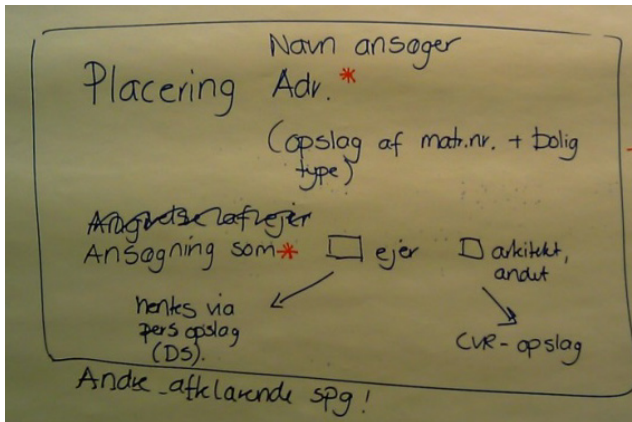 Navn ansøger
Placering Adr. *
(opslag af matr.nr. + bolig
type)
Ansøgning som * ejer arkitekt,
andet
hentes via
pers opslag
(DS).
CVR - opslag
Andre afklarende spg!